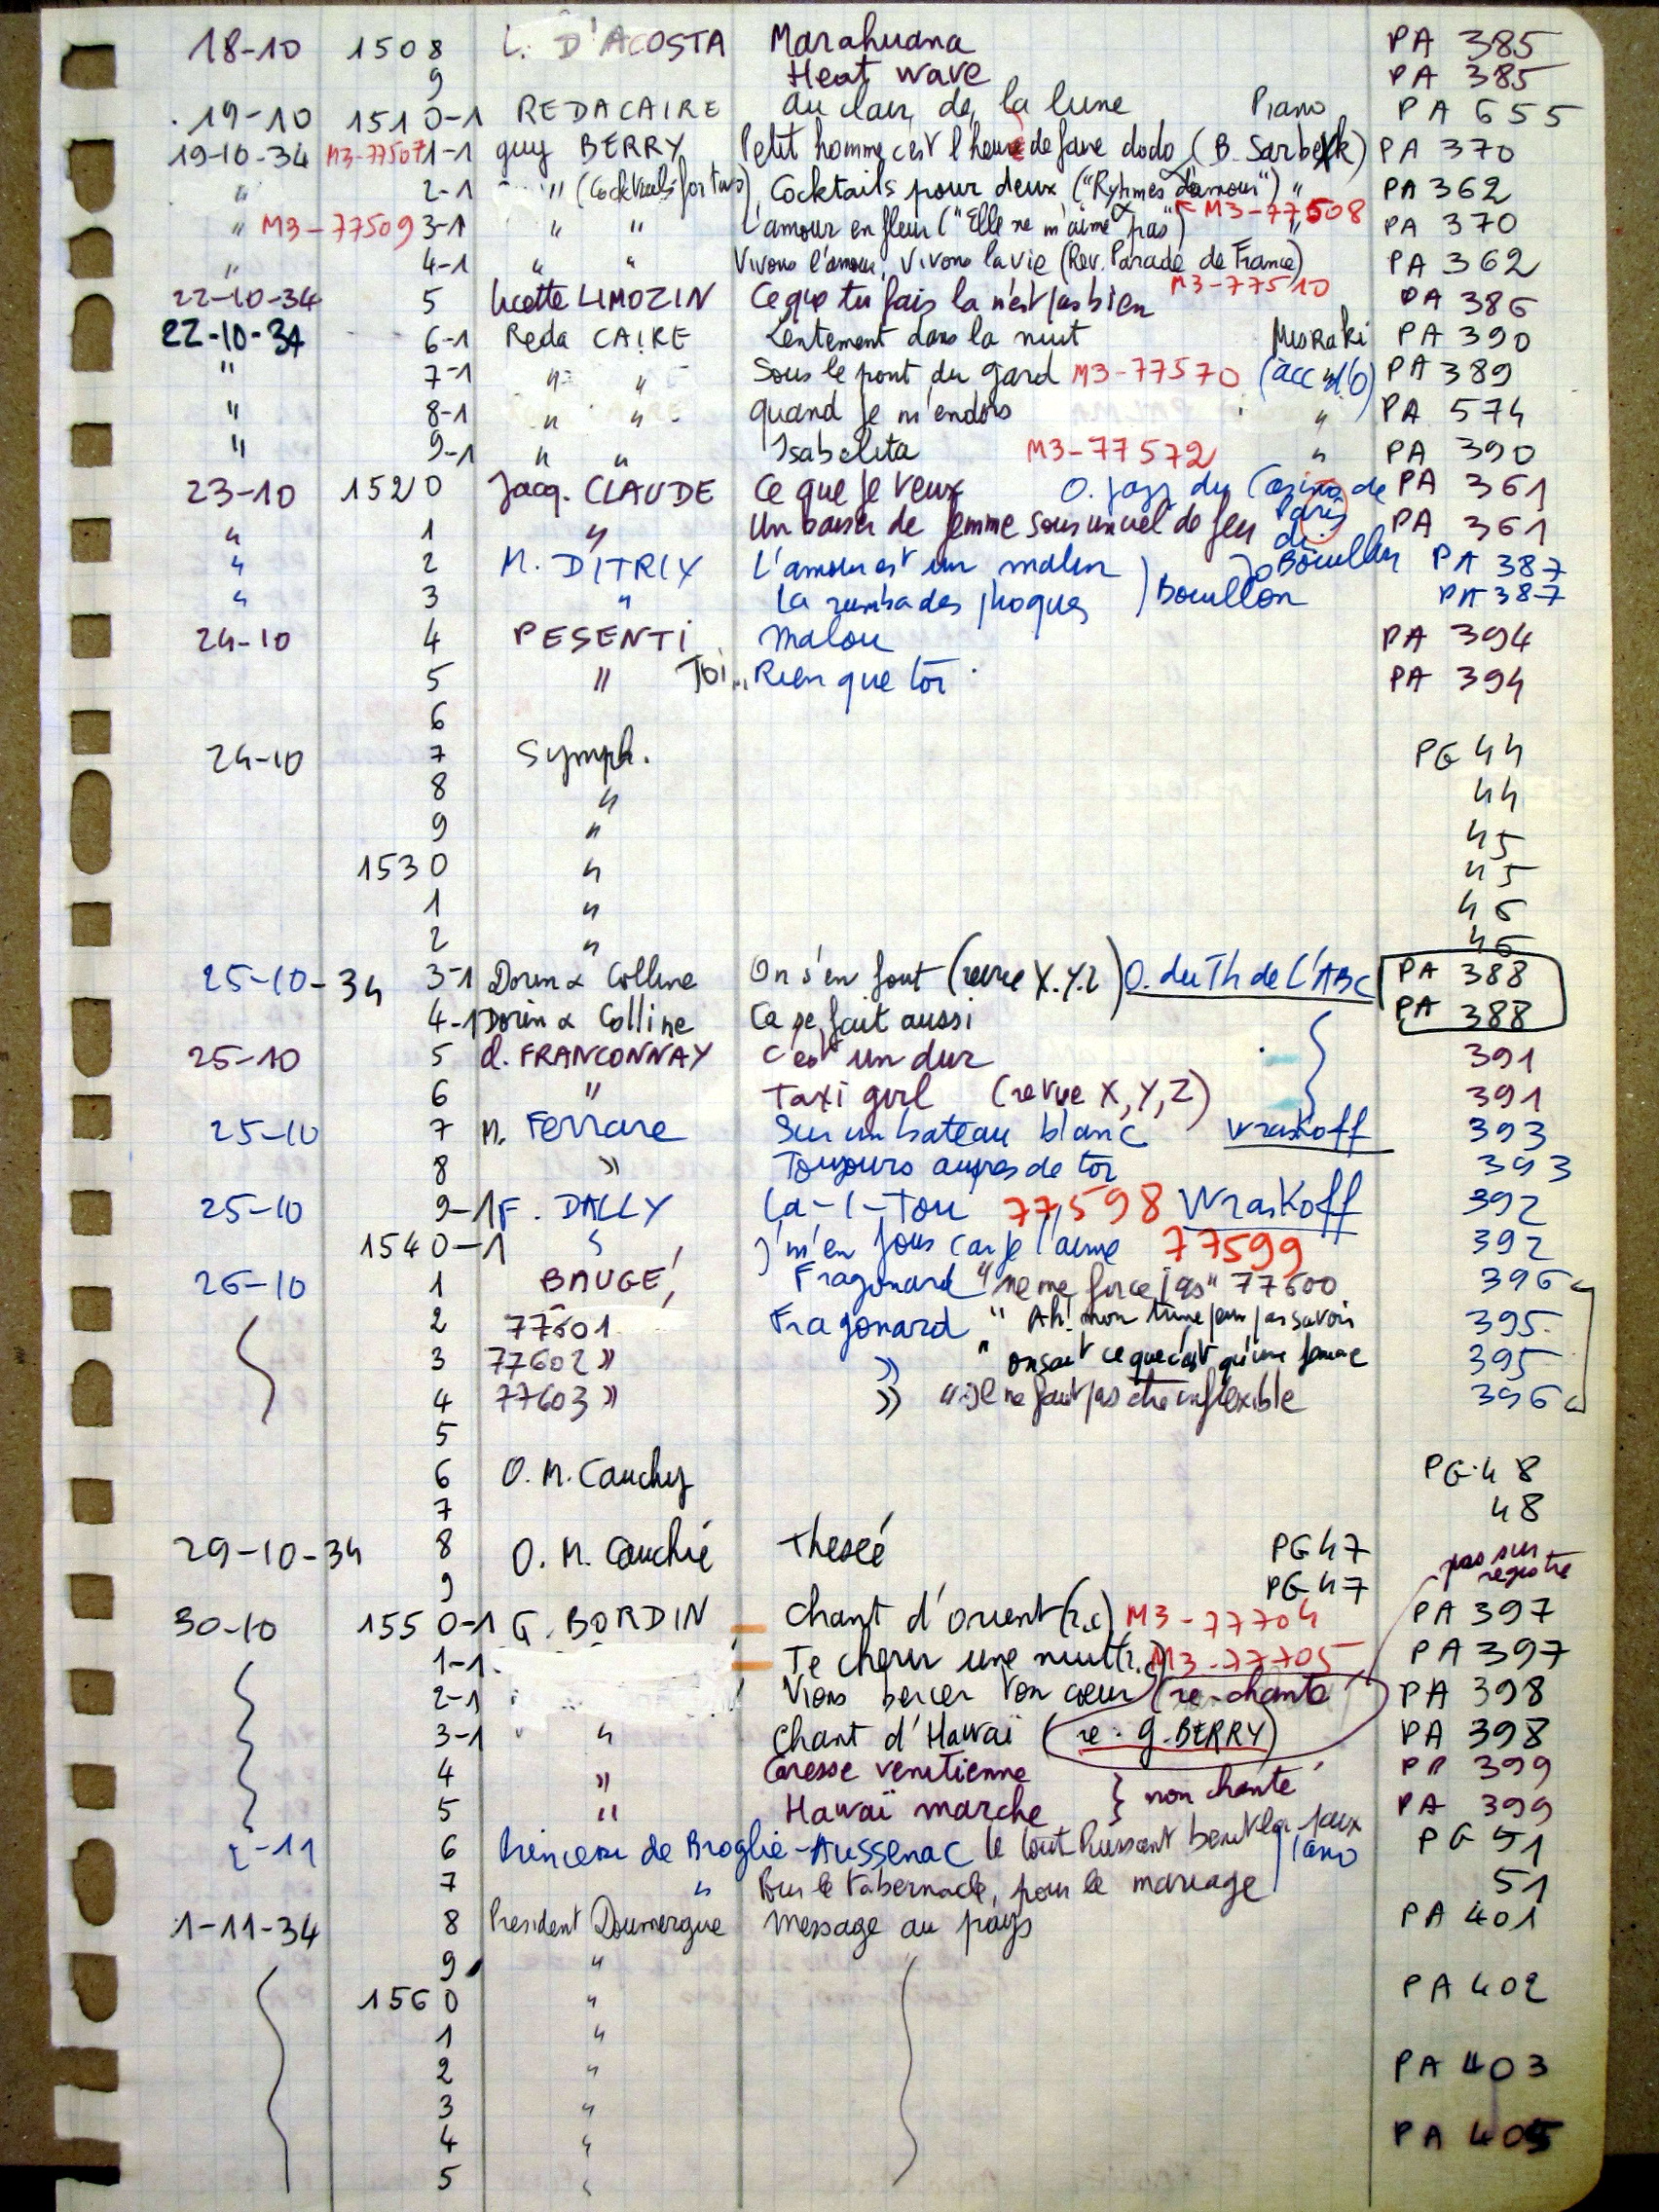 18-10 1508 L. D'ACOSTA Marahuana PA 385
9 Heat wave PA 385
19-10 1510-1 REDACAIRE au clair de la lune Piano PA 655
19-10-34 M3-77507 1-1 guy BERRY Petit homme c'est l'heure de faire dodo (B. Sarbek) PA 370
" 2-1 " (Cocktails for two) Cocktails pour deux ("Rythmes d'amour") " PA 362
" M3-77509 3-1 " " L'amour en fleur ("Elle ne m'aime pas") M3-77508 " PA 370
" 4-1 " " Vivons l'amour, Vivons la vie (Rev. Parade de France) PA 362
22-10-34 5 Lucette LIMOZIN Ce que tu fais la n'est pas bien M3-77510 PA 386
22-10-34 6-1 Reda CAIRE Lentement dans la nuit MisRaki PA 390
" 7-1 " " Sous le pont du gard M3-77570 (acc d'O) PA 389
" 8-1 " " quand je m'endors " PA 574
" 9-1 " " Isabelita M3-77572 " PA 390
23-10 1520 Jacq. CLAUDE Ce que je veux O. jazz du Casino de Paris PA 361
" 1 " Un baiser de femme sous un ciel de feu di. PA 361
" 2 M. DITRIX L'amour est un malin ) Bouillon PA 387
" 3 " La rumba des phoques ) Bouillon PA 387
24-10 4 PESENTI Malou PA 394
5 " Toi... Rien que toi PA 394
6
24-10 7 Symph. PG 44
8 " 44
9 " 45
1530 " 45
1 " 46
2 " 46
25-10-34 3-1 Dorin & Colline On s'en fout (revue X.Y.Z) O. du Th de L'ABC PA 388
4-1 Dorin & Colline Ca se fait aussi PA 388
25-10 5 d. FRANCONNAY C'est un dur 391
6 " Taxi girl (revue X, Y, Z) 391
25-10 7 M. Ferrare Sur un bateau blanc Wraskoff 393
8 " Toujours aupres de toi 393
25-10 9-1 F. DALLY La-I-Tou 77598 WrasKoff 392
1540-1 " J'm'en fous car je l'aime 77599 392
26-10 1 BAUGE, Fragonard "ne me force pas" 77600 396
2 77601 Fragonard " Ah! mon 395
3 77602 " " " on sait ce que c'est qu'une femme 395
4 77603 " " "il ne faut pas etre inflexible 396
5
6 O. M. Cauchy PG 48
7 48
29-10-34 8 O. M. Cauchié Theseé PG 47
9 PG 47
pas sur registre
30-10 1550-1 G. BORDIN Chant d'orient (r.c) M3-77704 PA 397
1-1 Te cherir une nuit (r.c) M3-77705 PA 397
2-1 Viens bercer ton coeur (re-chante PA 398
3-1 " Chant d'Hawaï (re: g. BERRY) PA 398
4 " Caresse venitienne } non chanté PA 399
5 " Hawaï marche PA 399
2-11 6 Princesse de Broglie-Aussenac le tout Puissant piano PG 51
7 " Pour le tabernacle, pour le mariage 51
1-11-34 8 President Doumergue Message au pays PA 401
9 "
1560 " PA 402
1 "
2 " PA 403
3 "
4 " PA 405
5 "